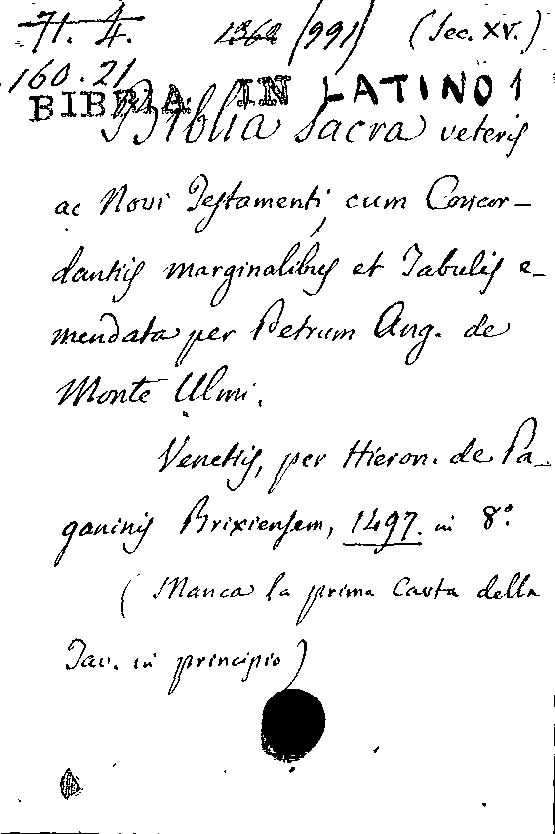 71. 4. 1362 (991) (Sec. XV.)
160.21
BIBBIA IN LATINO 1
Biblia Sacra veteris
ac Novi Testamenti, cum Concor-
dantiis marginalibus et Tabulis e-
mendata per Petrum Ang. de
Monte Ulmi.
Venetiis, per Hieron. de Pa-
ganinis Brixiensem, 1497. in 8°.
(Manca la prima Carta della
Tav. in principio)